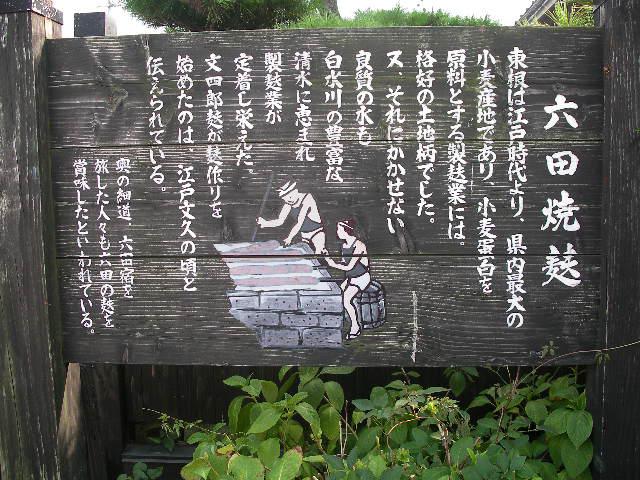 六田焼麩
東根は江戸時代より、県内最大の
小麦産地であり、小麦蛋白を
原料とする製麸業には。
格好の土地柄でした。
又、それにかかせない
良質の水も
白水川の豊富な
清水に恵まれ
製麸業が
定着し栄えた。
文四郎麸が麸作りを
始めたのは 江戸文久の頃と
伝えられている。
奥の細道、六田宿を
旅した人々も六田の麸を
賞味したといわれている。